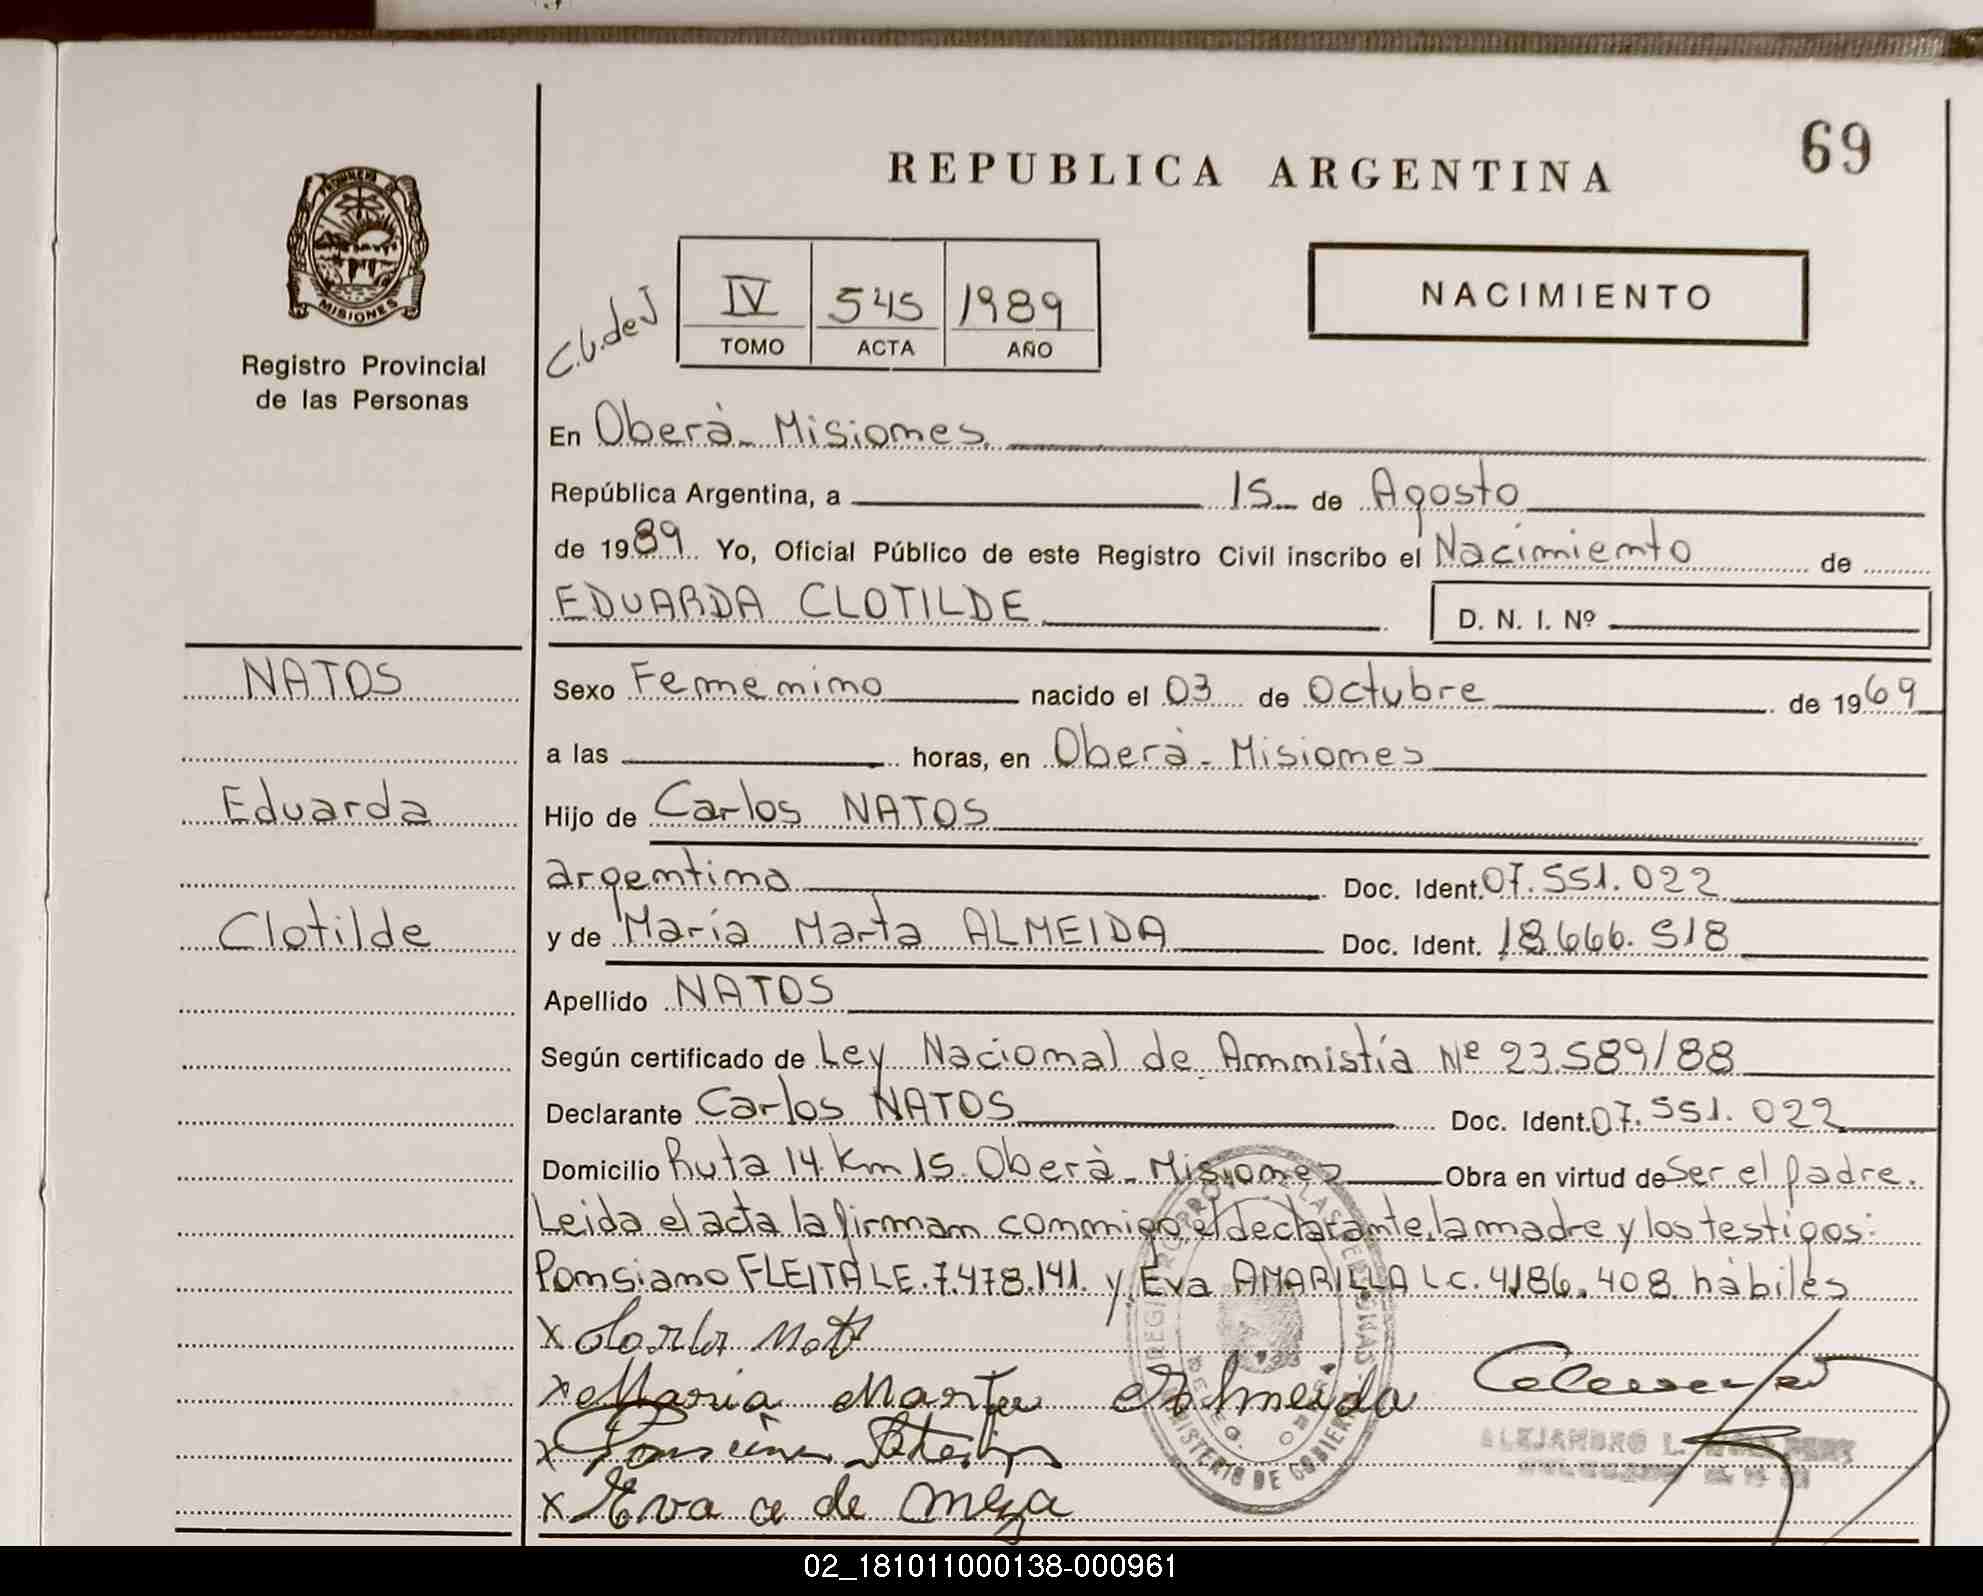 69
REPUBLICA ARGENTINA
PROVINCIA DE
MISIONES
Registro Provincial
de las Personas
C.U.deJ
IV 545 1989
TOMO ACTA AÑO
NACIMIENTO
En Oberà - Misiones
República Argentina, a 15 de Agosto
de 1989 Yo, Oficial Público de este Registro Civil inscribo el Nacimiento de
EDUARDA CLOTILDE D. N. I. Nº
NATOS
Eduarda
Clotilde
Sexo Femenino nacido el 03 de Octubre de 1969
a las horas, en Oberà - Misiones
Hijo de Carlos NATOS
argentino Doc. Ident. 07.551.022
y de María Marta ALMEIDA Doc. Ident. 18.666.518
Apellido NATOS
Según certificado de Ley Nacional de Amnistía Nº 23.589/88
Declarante Carlos NATOS Doc. Ident. 07.551.022
Domicilio Ruta 14. Km 15. Oberà - Misiones Obra en virtud de Ser el padre.
Leida el acta la firman conmigo el declarante, la madre y los testigos:
Ponsiano FLEITA LE. 7.478.141. y Eva AMARILLA LC. 4.186.408 hàbiles
x Carlos Natos
x Maria Marta Almeida
x
x Eva a de Meza
MINISTERIO DE GOBIERNO
ALEJANDRO L.
02_181011000138-000961